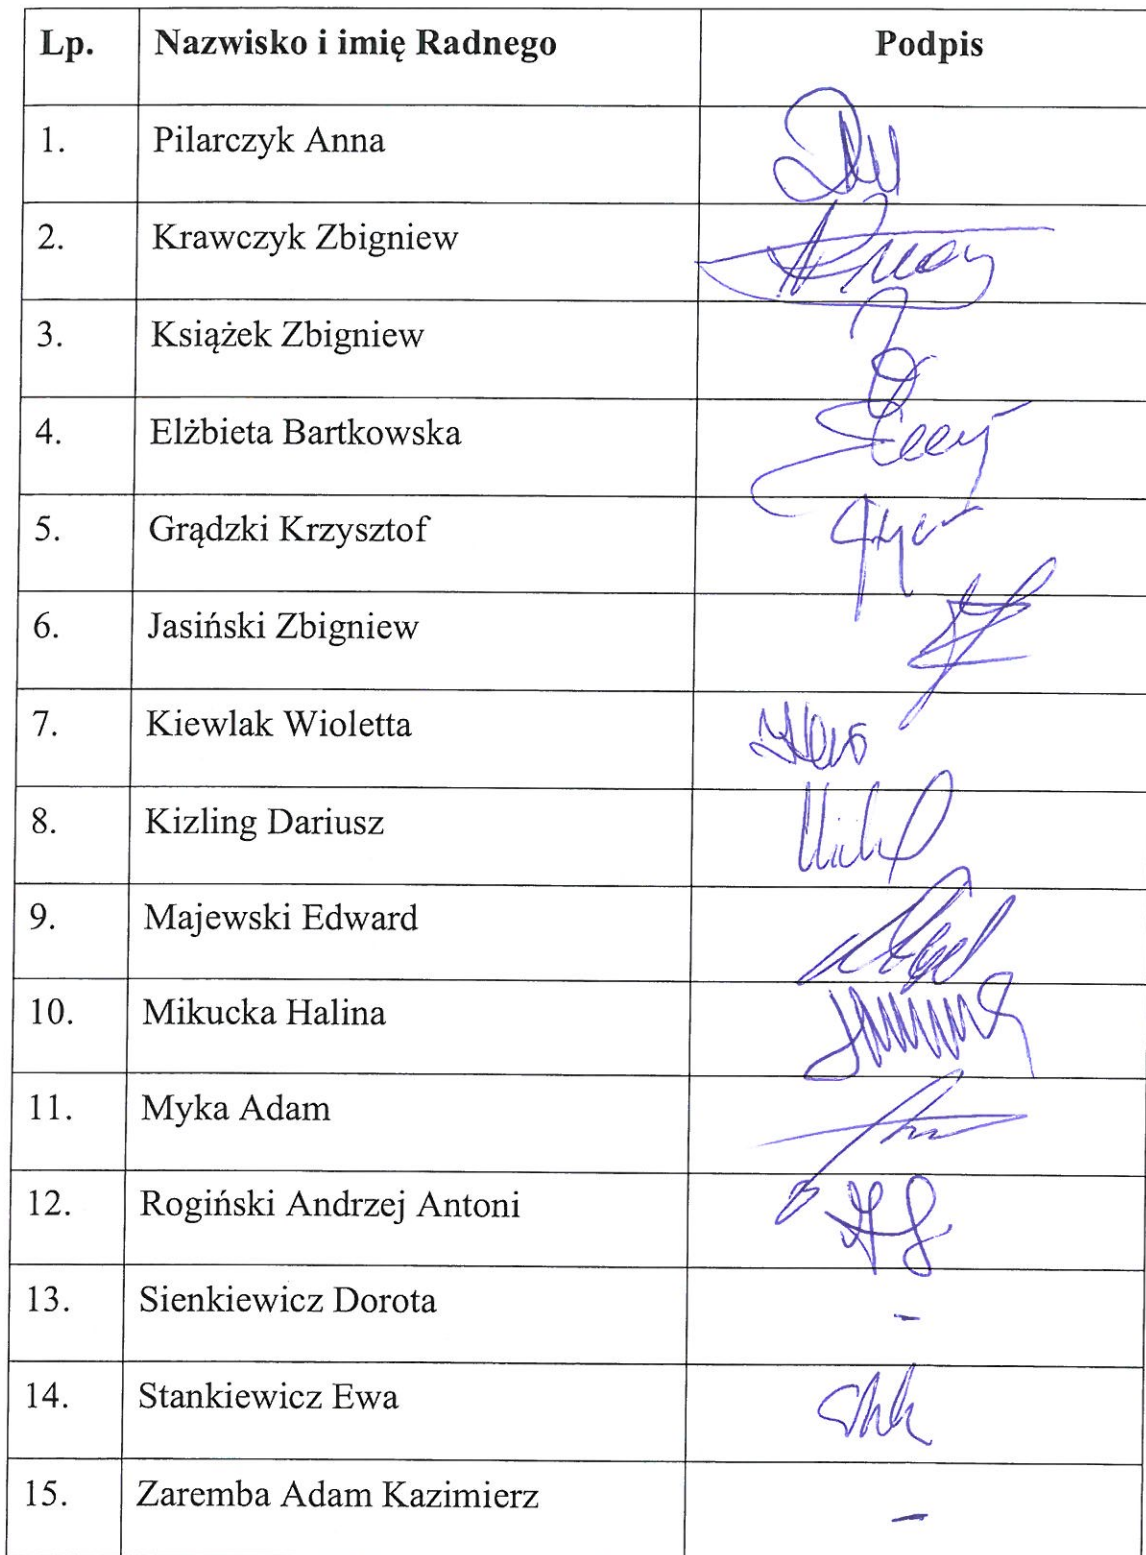 Lp. Nazwisko i imię Radnego Podpis
1. Pilarczyk Anna
2. Krawczyk Zbigniew
3. Książek Zbigniew
4. Elżbieta Bartkowska
5. Grądzki Krzysztof
6. Jasiński Zbigniew
7. Kiewlak Wioletta
8. Kizling Dariusz
9. Majewski Edward
10. Mikucka Halina
11. Myka Adam
12. Rogiński Andrzej Antoni
13. Sienkiewicz Dorota -
14. Stankiewicz Ewa
15. Zaremba Adam Kazimierz -